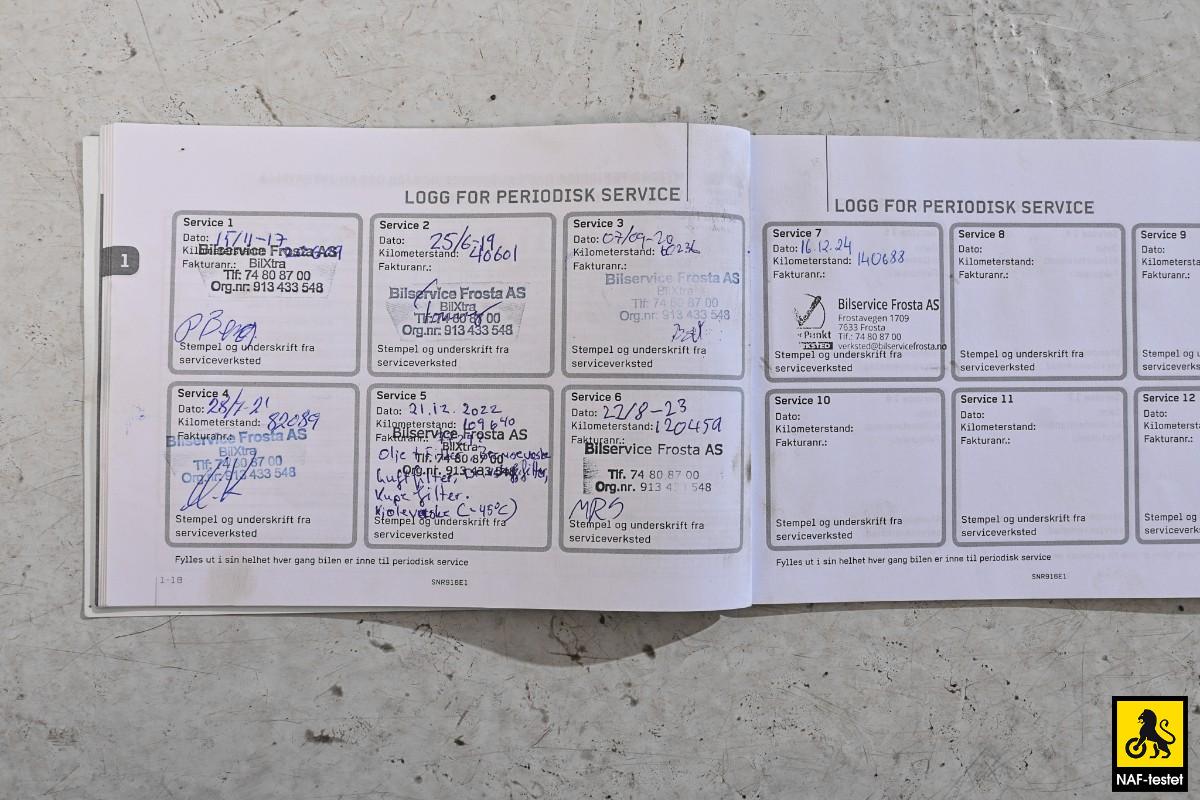 LOGG FOR PERIODISK SERVICE
Service 1
Dato: 15/11-17
Fakturanr.:
Bilservice Frosta AS
BilXtra
Tlf: 74 80 87 00
Org.nr: 913 433 548
Stempel og underskrift fra
serviceverksted
Service 2
Dato: 25/6-19
Kilometerstand: 40601
Fakturanr.:
Bilservice Frosta AS
BilXtra
Tlf: 74 80 87 00
Org.nr: 913 433 548
Stempel og underskrift fra
serviceverksted
Service 3
Dato: 07/09-20
Kilometerstand:
Fakturanr.:
Bilservice Frosta AS
BilXtra
Tlf: 74 80 87 00
Org.nr: 913 433 548
Stempel og underskrift fra
serviceverksted
Service 4
Dato: 28/7-21
Kilometerstand: 82089
Fakturanr.:
Bilservice Frosta AS
BilXtra
Tlf: 74 80 87 00
Org.nr: 913 433 548
Stempel og underskrift fra
serviceverksted
Service 5
Dato: 21.12.2022
Kilometerstand: 109640
Fakturanr.:
Bilservice Frosta AS
BilXtra
Tlf: 74 80 87 00
Org.nr: 913 433 548
Olje +
Luftfilter,
Kupefilter.
Kjølevæske (-45°C)
Stempel og underskrift fra
serviceverksted
Service 6
Dato: 22/8-23
Kilometerstand: 120459
Fakturanr.:
Bilservice Frosta AS
Tlf. 74 80 87 00
Org.nr. 913 4 548
MRS
Stempel og underskrift fra
serviceverksted
Fylles ut i sin helhet hver gang bilen er inne til periodisk service
1
1-18
SNR916E1
LOGG FOR PERIODISK SERVICE
Service 7
Dato: 16.12.24
Kilometerstand: 140688
Fakturanr.:
Punkt
Bilservice Frosta AS
Frostavegen 1709
7633 Frosta
Tlf.: 74 80 87 00
verksted@bilservicefrosta.no
Stempel og underskrift fra
serviceverksted
Service 8
Dato:
Kilometerstand:
Fakturanr.:
Stempel og underskrift fra
serviceverksted
Service 9
Dato:
Stempel og
Service 10
Dato:
Kilometerstand:
Fakturanr.:
Stempel og underskrift fra
serviceverksted
Service 11
Dato:
Kilometerstand:
Fakturanr.:
Stempel og underskrift fra
serviceverksted
Service 12
Dato:
Stempel og
Fylles ut i sin helhet hver gang bilen er inne til periodisk service
SNR916E1
NAF-testet